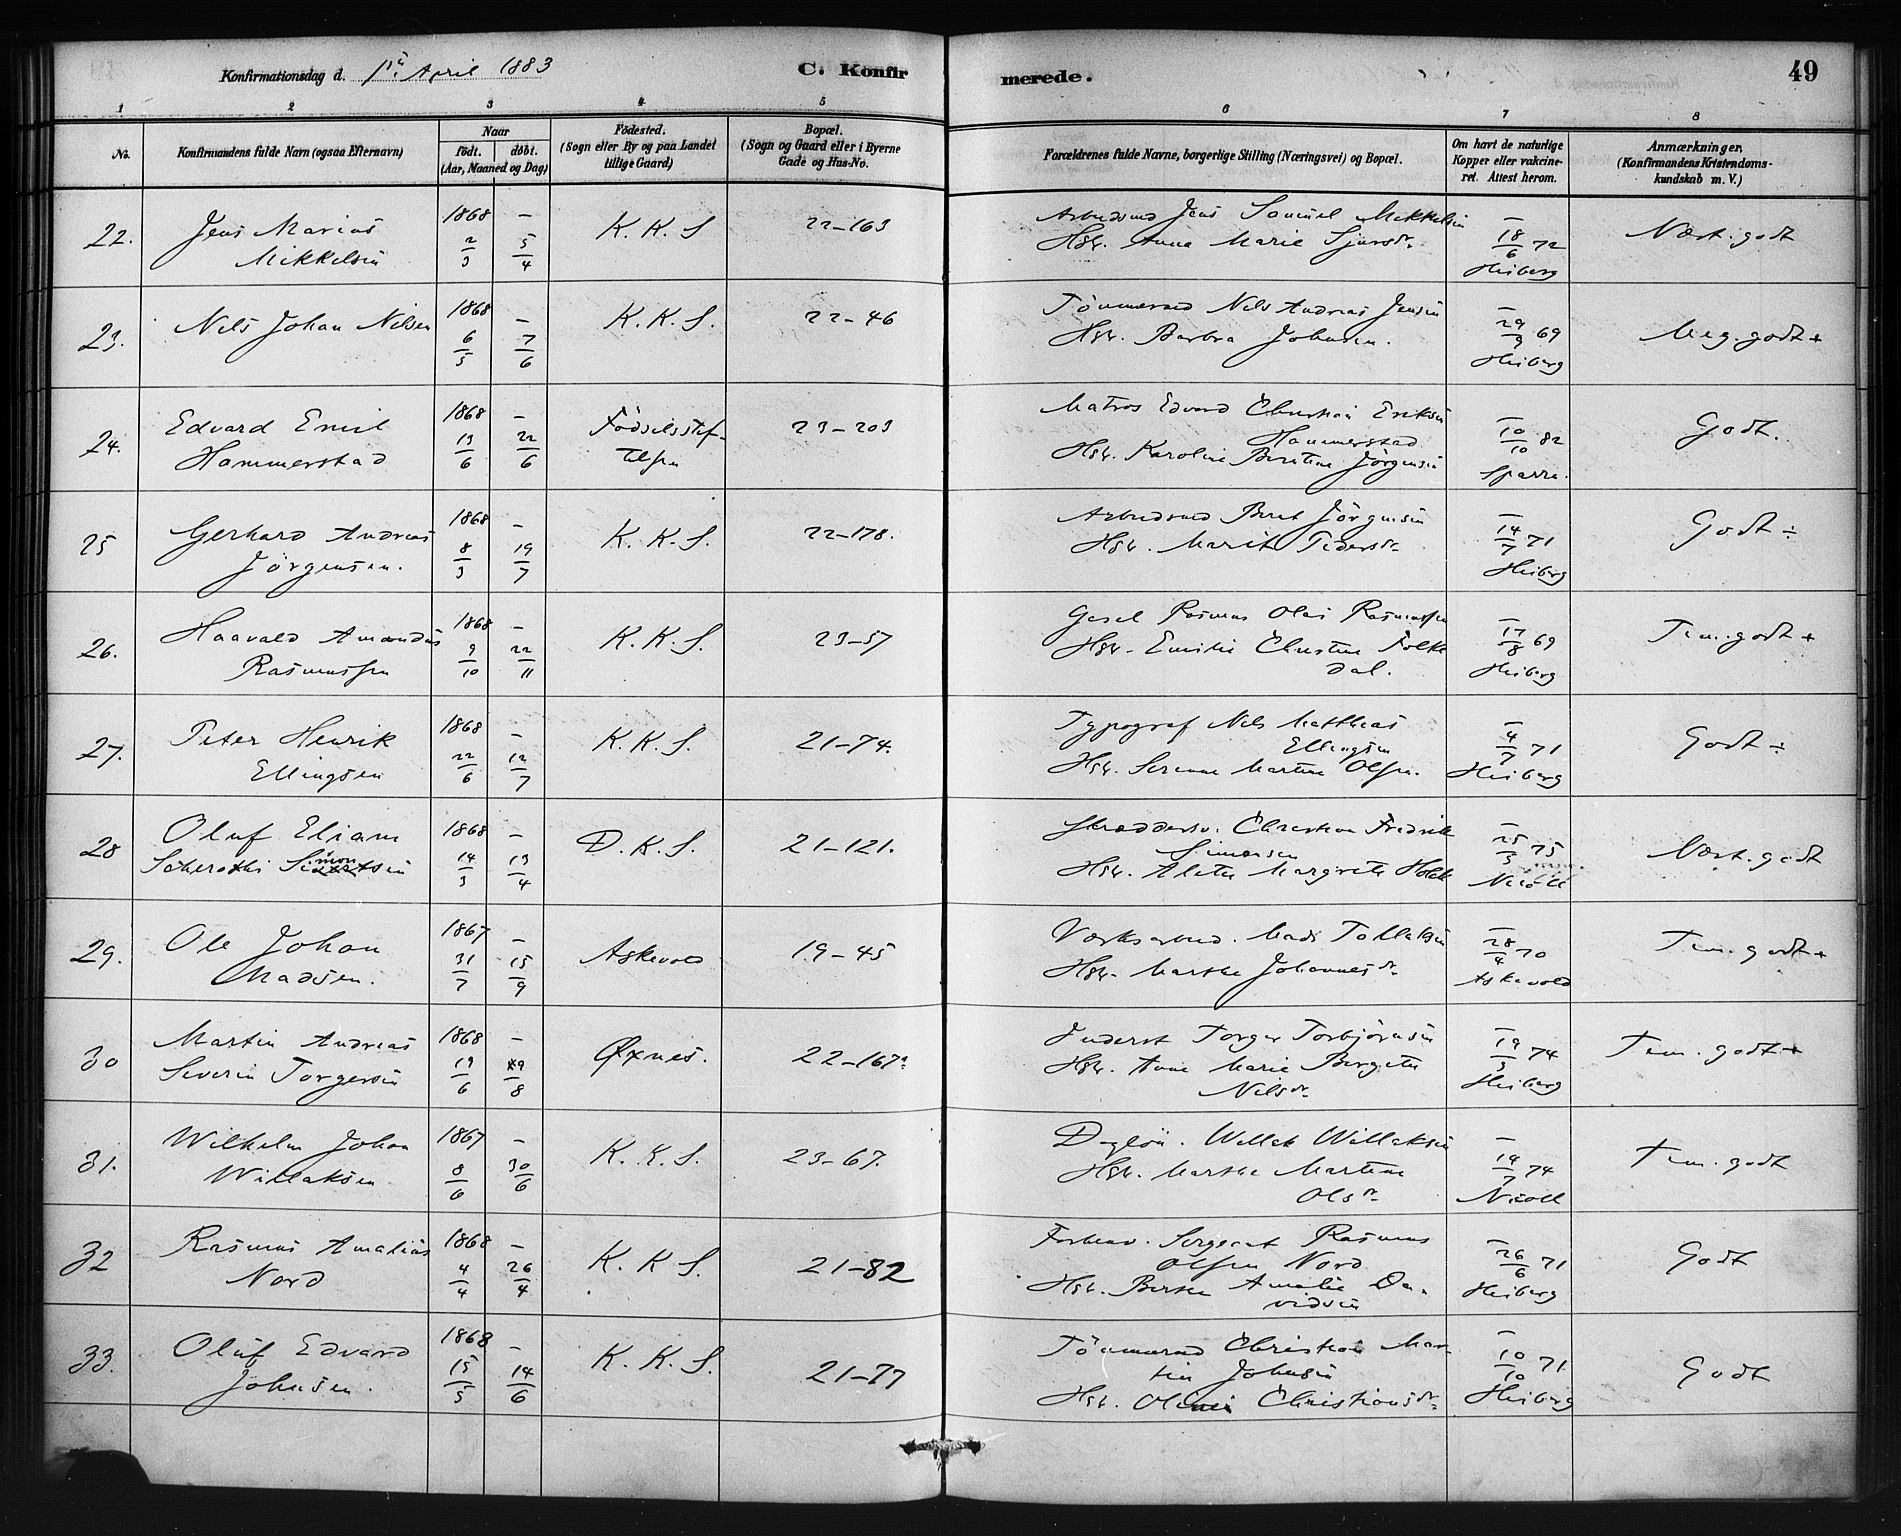 Konfirmationsdag d. 1ste April 1883
C. Konfirmerede.
49
1 2 3 4 5 6 7 8
No.
Konfirmandens fulde Navn (ogsaa Efternavn)
Naar
født. døbt.
(Aar, Maaned og Dag)
Fødested.
(Sogn eller By og paa Landet
tillige Gaard)
Bopæl.
(Sogn og Gaard eller i Byerne
Gade og Hus-No.
Forældrenes fulde Navne, borgerlige Stilling (Næringsvei) og Bopæl.
Om havt de naturlige
Kopper eller vakcine-
ret. Attest herom.
Anmærkninger.
(Konfirmandens Kristendoms-
kundskab m. V.)
22. Jens Marius 1868 — K. K. S 22-163 Arbeidsmd Jens Samuel Mikkelsen — Næst. godt
Mikkelsen 2/3 5/4 Hst. Anna Marie Sjursdr. 18/6 72
Heiberg
23. Nils Johan Nilsen 1868 — K. K. S. 22-46 Tømmermd Nils Andreas Jensen — Meg. godt +
6/5 7/6 Hst. Barbra Johnsen. 29/9 69
Heiberg
24. Edvard Emil 1868 — Fødselsstif- 23-203 Matros Edvard Christian Eriksen — Godt.
Hammerstad 13/6 22/6 telsen Hammerstad 10/10 82
Hst. Karoline Berntine Jørgensen Sparre.
25 Gerhard Andreas 1868 — K. K. S. 22-178. Arbeidsmd Bernt Jørgensen — Godt ÷
Jørgensen. 8/3 19/7 Hst. Marit Pedersdr. 14/7 71
Heiberg
26. Haavald Amandus 1868 — K. K. S. 23-57 Gesel Rasmus Olai Rasmussen — Tem. godt +
Rasmussen 9/10 22/11 Hst. Emilie Christine Folke 17/8 69
dal. Heiberg
27. Peter Henrik 1868 — K. K. S. 21-74. Typograf Nils Matthias — Godt ÷
Ellingsen 22/6 12/7 Ellingsen 4/7 71
Hst. Serianne Martine Olsen. Heiberg
28 Oluf Eliam 1868 — D. K. S. 21-121. Skræddersv. Christian Fredrik — Næst. godt
14/3 13/4 Simonsen 25/3 75
Hst. Alette Margrete Holck Nicoll
29. Ole Johan 1867 — Askevold 19-45 Værksarbeid. Mads Tollaksen — Tem. godt +
Madsen. 31/7 15/9 Hst. Marthe Johannesdr. 28/4 70
Askevold
30 Martin Andreas 1868 — Øxnes. 22-167a Inderst Torger Torbjørnsen — Tem. godt +
Severin Torgersen 19/6 9/8 Hst. Anne Marie Bergete 19/3 74
Nilsdr. Heiberg
31. Wilhelm Johan 1867 — K. K. S. 23-67. Dagløn. Willak Willaksen — Tem. godt
Willaksen 8/6 30/6 Hst. Marthe Martine 19/7 74
Olsdr. Nicoll
32 Rasmus Amalius 1868 — K. K S. 21-82 Forhenv. Sergeant Rasmus — Godt
Nord 4/4 26/4 Olsen Nord 26/6 71
Hst. Berthe Amalie Da-
vidsen Heiberg
33. Oluf Edvard 1868 — K. K. S. 21-77 Tømmermd Christian Mar- — Godt
Johnsen. 15/5 14/6 tin Johnsen 10/10 71
Hst. Oline Christiansdr. Heiberg